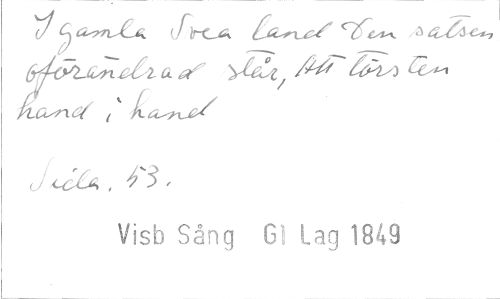 I gamla Svea land Den satsen
oförändrad står, Att törsten
hand i hand
Sida. 53.
Visb Sång Gl Lag 1849